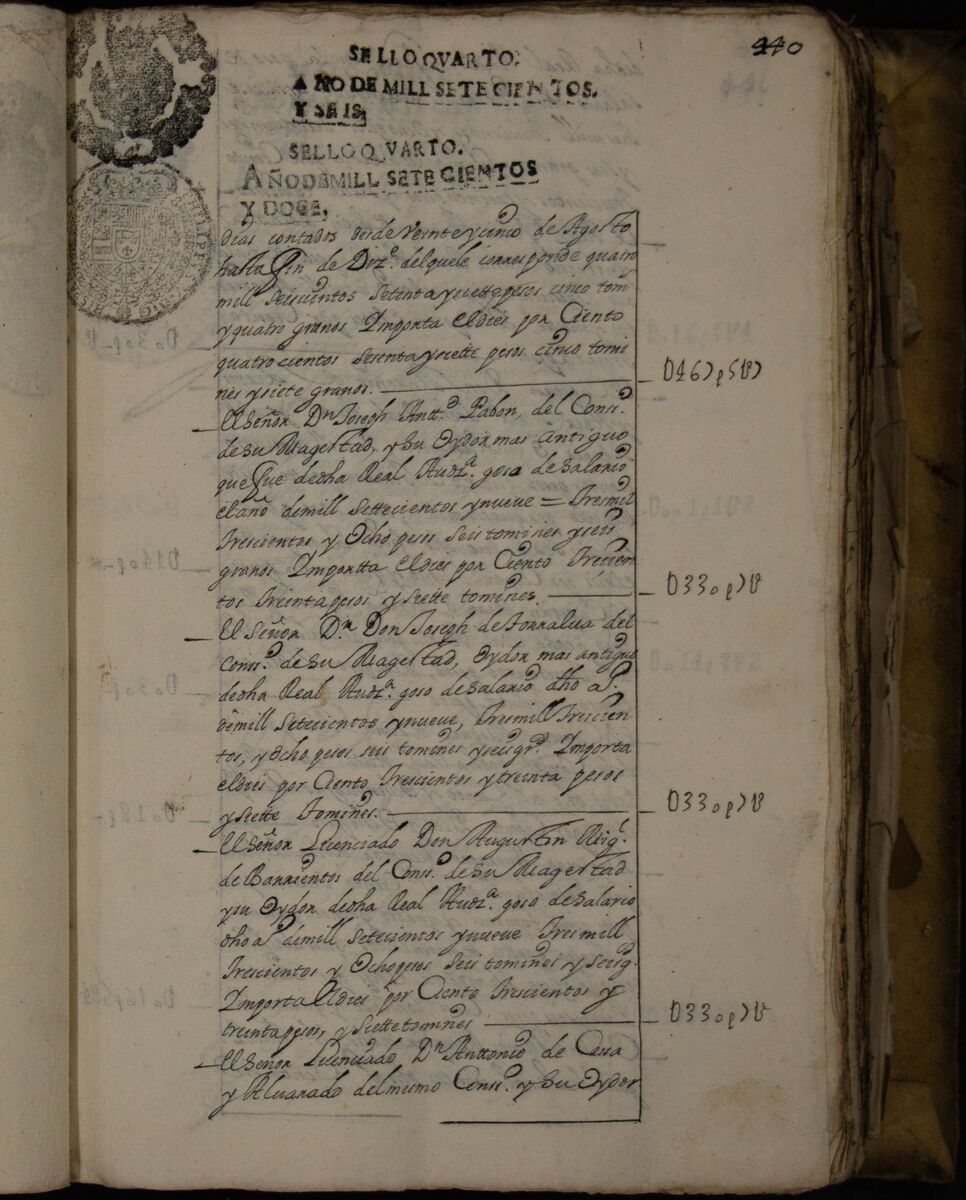 440
SELLO QVARTO.
AÑO DE MILL SETECIENTOS.
Y SEIS,
SELLO QVARTO.
AÑO DE MILL SETECIENTOS
Y DOCE,
dias contados desde Veinte y cinco de Agosto
hasta fin de Diz.e del quele corresponde quatro
mill seiscientos setenta y siette pesos cinco tom
y quatro granos Ymporta el dies por Ciento
quatrocientos sesenta y siette pesos cinco tomi
nes y siete granos.
El Señor Dn Joseph Antt.o Pabon, del Cons.o
de su Magestad, y su Oydor mas antiguo
que fue de dha Real Audz.a gosa de salario
el año de mill settecientos y nueve = Tresmil
Trescientos y Ocho pesos seis tomines y seis
granos Ymportta el dies por Ciento Trecien
tos treinta pesos y siette tomines.
El Señor D.n Don Joseph de Torralua del
Cons.o de su Magestad, Oydor mas antiguo
de dha Real Audz.a goso de salario dho a.o
de mill setecientos y nueve, tresmill Trescien
tos, y Ocho pesos seis tomines y seis gr.s Ymporta
el dies por Ciento Trescientos y treinta pesos
y siette tomines.
El Señor Licenciado Don Augustin Mig.l
de Barrientos del Cons.o de su Magestad
y su Oydor de dha Real Audz.a goso de salario
dho a.o de mill setecientos y nueve Tresmill
Trescientos y Ocho pesos seis tomines y seis g.
Ymporta el dies por Ciento Trescientos y
treinta pesos, y siette tomines
El Señor Licenciado, Dn Anttonio de Cesa
y Aluarado del mismo Cons.o y su Oydor